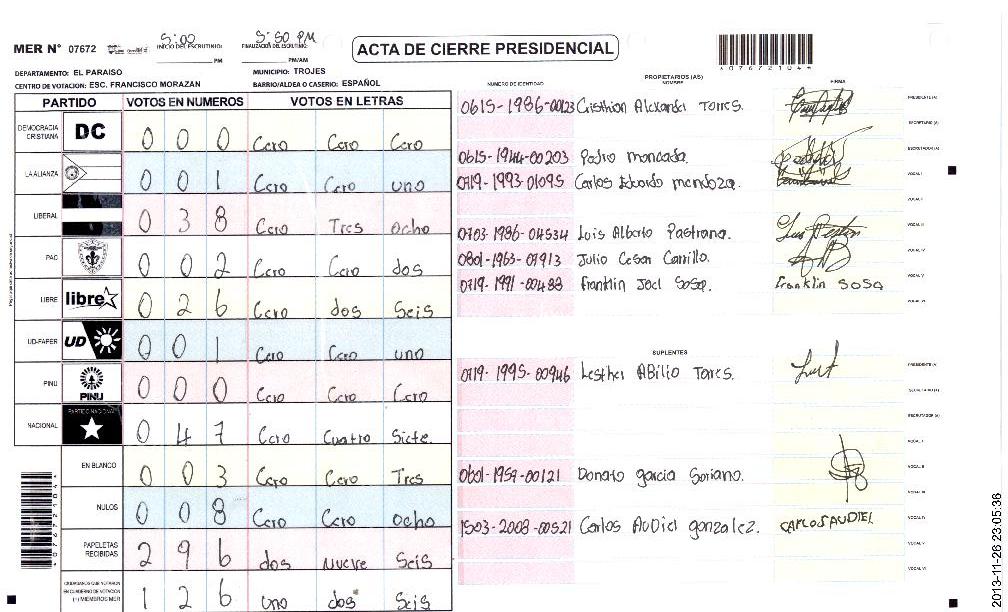 MER N° 07672
5:00
INICIO DEL ESCRUTINIO:
PM
5:50 PM
FINALIZACIÓN DEL ESCRUTINIO:
PM/AM
ACTA DE CIERRE PRESIDENCIAL
DEPARTAMENTO: EL PARAISO
MUNICIPIO: TROJES
CENTRO DE VOTACION: ESC. FRANCISCO MORAZAN
BARRIO/ALDEA O CASERIO: ESPAÑOL
PARTIDO VOTOS EN NUMEROS VOTOS EN LETRAS
DEMOCRACIA CRISTIANA DC 0 0 0 Cero Cero Cero
LA ALIANZA 0 0 1 Cero Cero uno
LIBERAL 0 3 8 Cero Tres ocho
PAC 0 0 2 Cero Cero dos
LIBRE libre 0 2 6 Cero dos Seis
UD-FAPER UD 0 0 1 Cero Cero uno
PINU PINU 0 0 0 Cero Cero Cero
NACIONAL PARTIDO NACIONAL 0 4 7 Cero Cuatro Siete.
EN BLANCO 0 0 3 Cero Cero Tres
NULOS 0 0 8 Cero Cero ocho
PAPELETAS RECIBIDAS 2 9 6 dos Nueve Seis
CIUDADANOS QUE VOTARON EN CUADERNO DE VOTACION (+) MIEMBROS MER 1 2 6 uno dos Seis
NUMERO DE IDENTIDAD
PROPIETARIOS (AS)
NOMBRE
FIRMA
0615-1986-00123 Cristhian Alexander Torres.
PRESIDENTE (A)
SECRETARIO (A)
0615-1944-00203 Pedro moncada.
ESCRUTADOR (A)
0719-1993-01095 Carlos Eduardo mendoza.
VOCAL I
VOCAL II
0703-1986-04534 Luis Alberto Pastrana.
VOCAL III
0801-1963-07913 Julio Cesar Carrillo.
VOCAL IV
0719-1991-00488 franklin Joel Sosa. franklin SOSA
VOCAL V
VOCAL VI
SUPLENTES
0719-1995-00946 Lesther ABilio Torres.
PRESIDENTE (A)
SECRETARIO (A)
ESCRUTADOR (A)
VOCAL I
0601-1959-00121 Donato garcia Soriano.
VOCAL II
VOCAL III
1503-2008-00521 Carlos AuDiel gonzalez. CARLOS AUDIEL
VOCAL IV
VOCAL V
VOCAL VI
2013-11-26 23:05:36